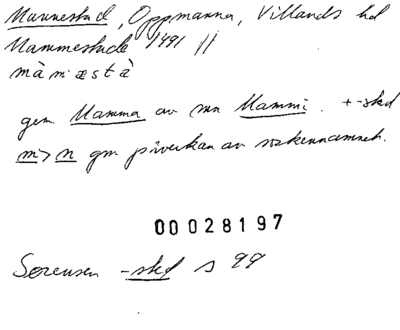 Mannestad, Oppmanna, Villands hd
Mammestade 1491 //
mànæstà
gen. Mamma av mn Mammi. +-sta
m>n gm påverkan av sockennamnet.
00028197
Sørensen -sta s 99